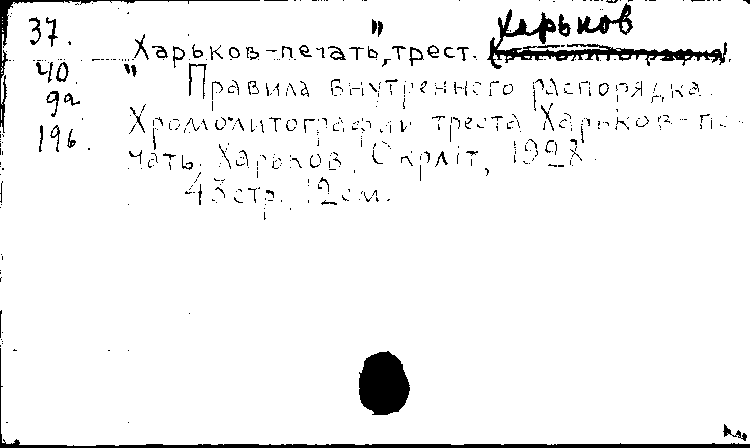 37.
40.
92
196.
Харьков
"Харьков-печать", трест. (Хромолитография).
Правила внутреннего распорядка
Хромолитографии треста Харьков-пе-
чать. Харьков, Скрліт, 1928.
43 стр. 12 см.